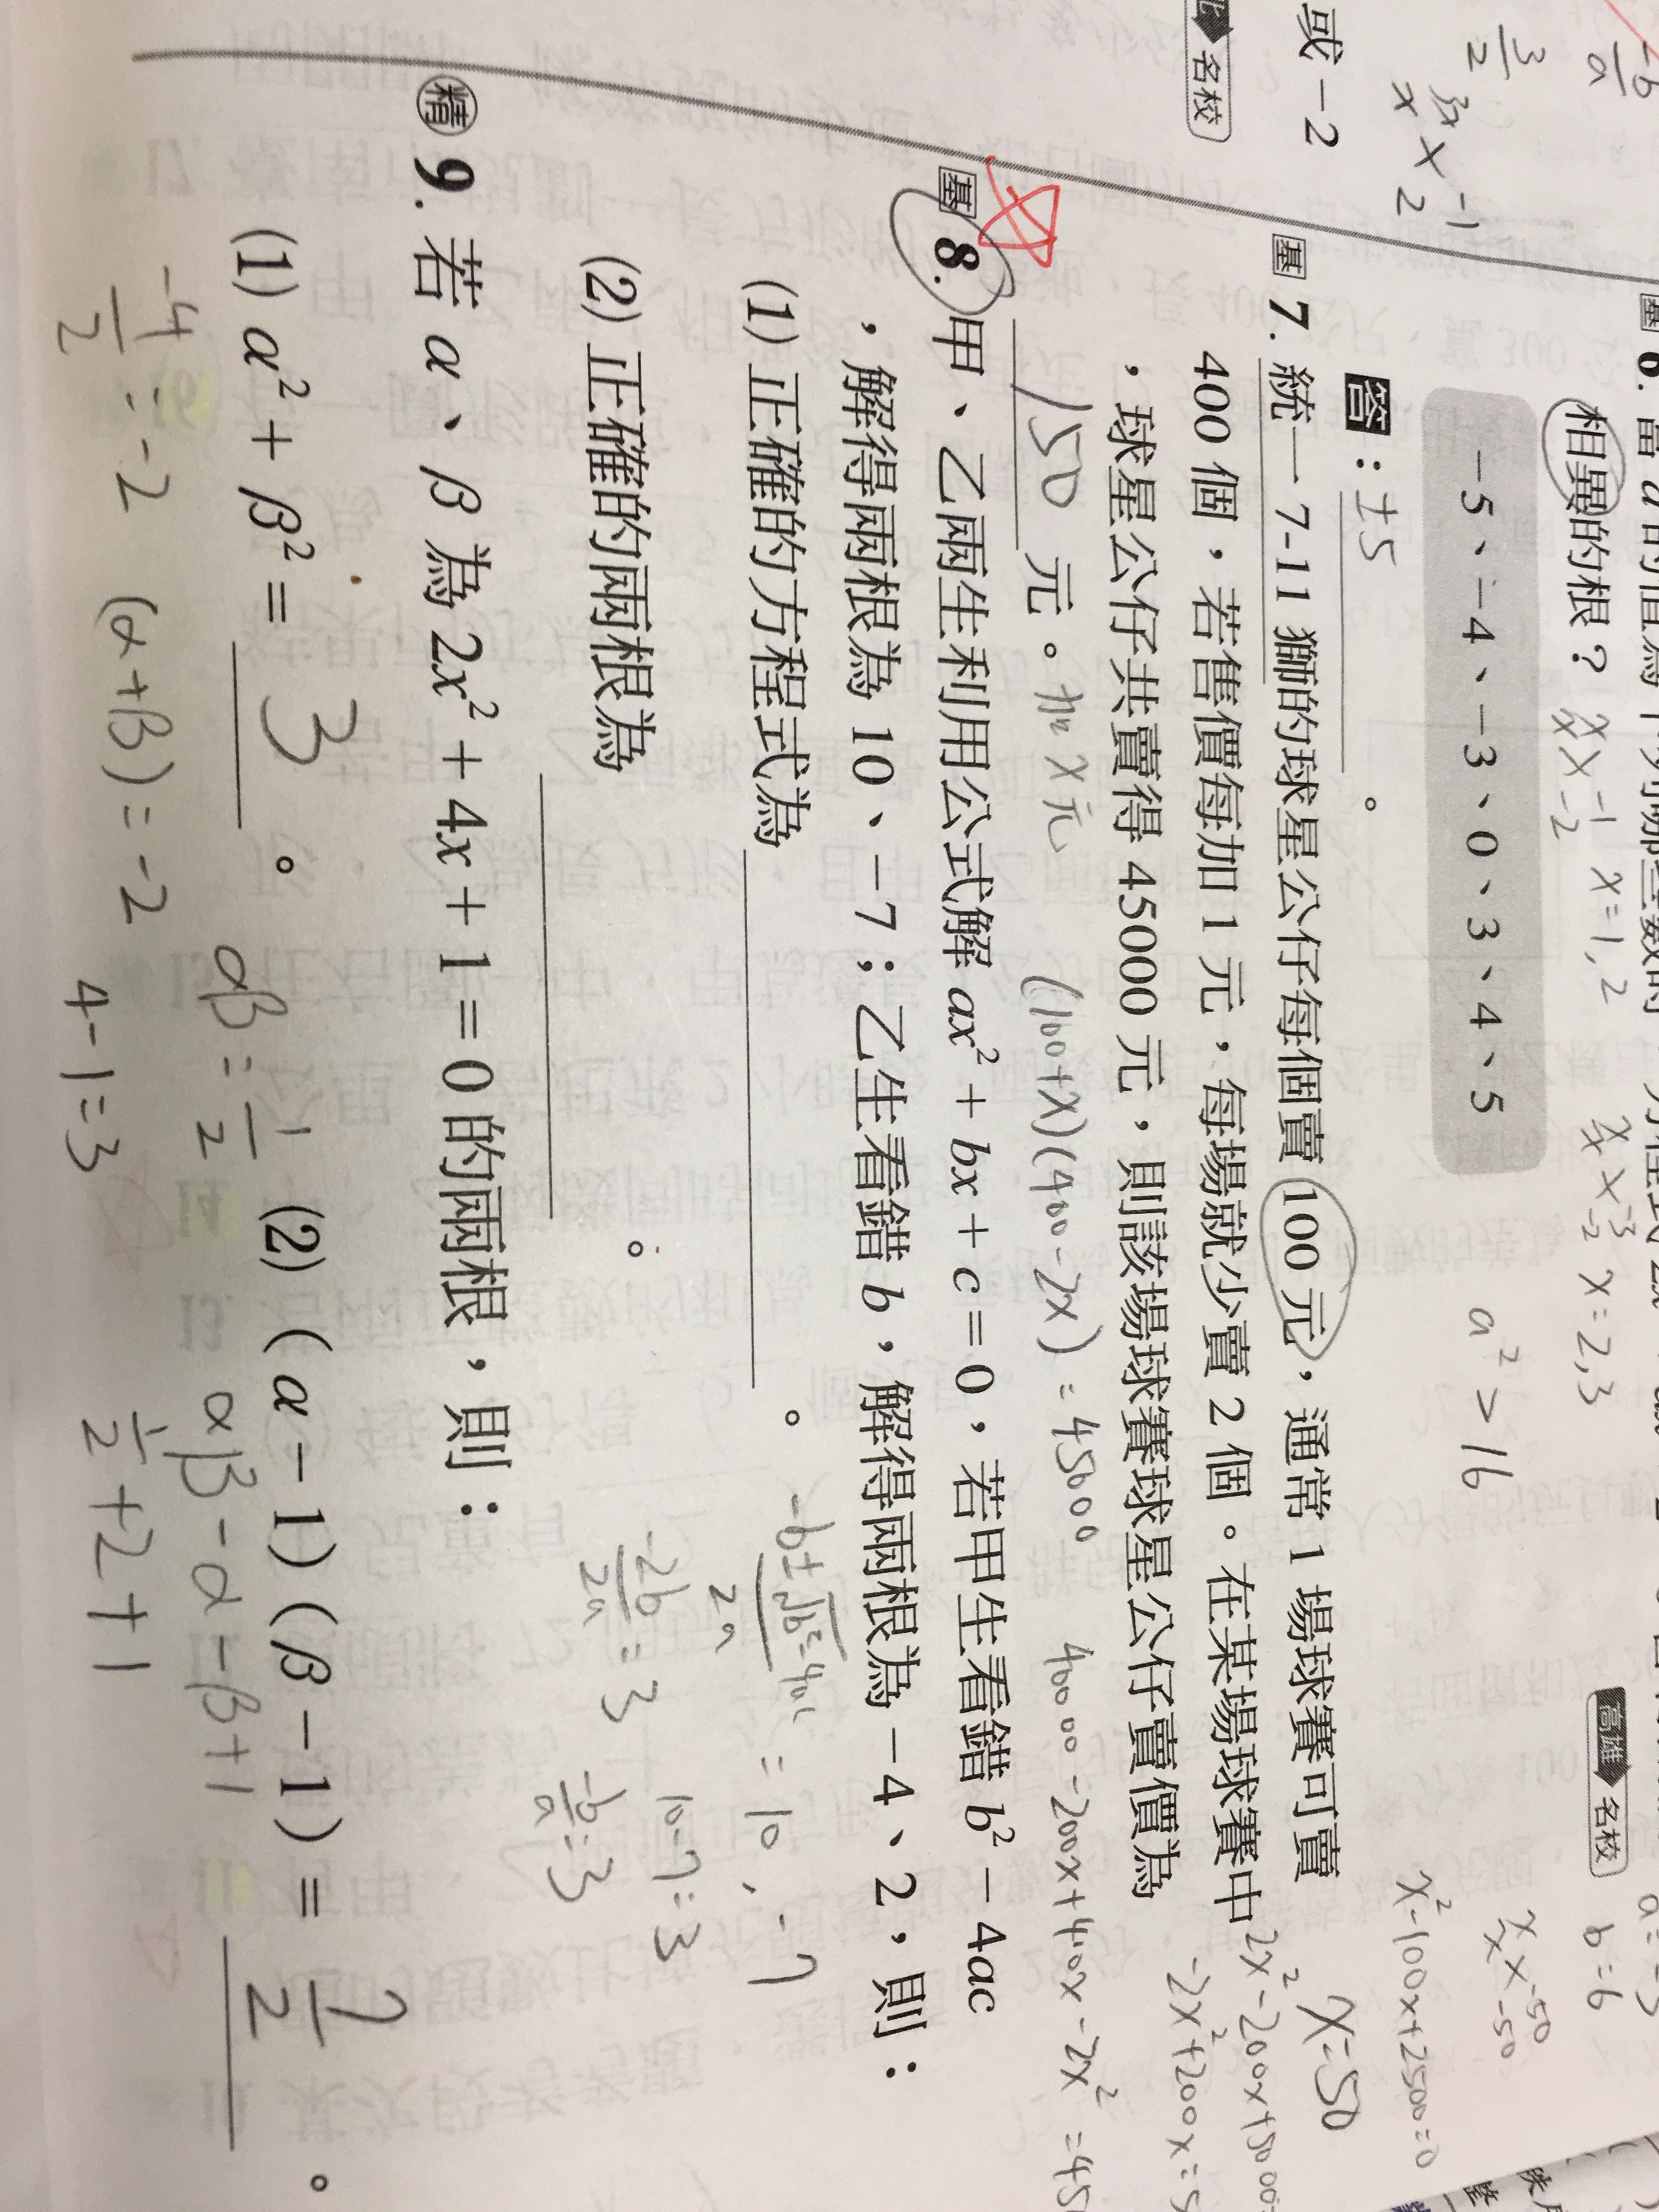 或 −2
名校
相異的根？
−5、−4、−3、0、3、4、5
答：±5。
a² > 16
高雄 名校
x = 1, 2
x = 2, 3
b = 6
基 7. 統一 7-11 獅的球星公仔每個賣 100 元，通常 1 場球賽可賣
400 個，若售價每加 1 元，每場就少賣 2 個。在某場球賽中
，球星公仔共賣得 45000 元，則該場球賽球星公仔賣價為
150 元。
加 x 元
(100+x)(400-2x) = 45000
40000 - 200x + 400x - 2x² = 45
x² - 100x + 2500 = 0
x = 50
基 8. 甲、乙兩生利用公式解 ax² + bx + c = 0，若甲生看錯 b² − 4ac
，解得兩根為 10、−7；乙生看錯 b，解得兩根為 −4、2，則：
(1) 正確的方程式為 。
(2) 正確的兩根為 。
-b±√b²-4ac / 2a = 10, -7
-2b/2a = 3
10-7=3
-b/a = 3
精 9. 若 α、β 為 2x² + 4x + 1 = 0 的兩根，則：
(1) α² + β² = 3 。 (2) (α − 1)(β − 1) = 7/2 。
-4/2 = -2
(α+β) = -2
αβ = 1/2
4-1=3
αβ - α - β + 1
1/2 + 2 + 1